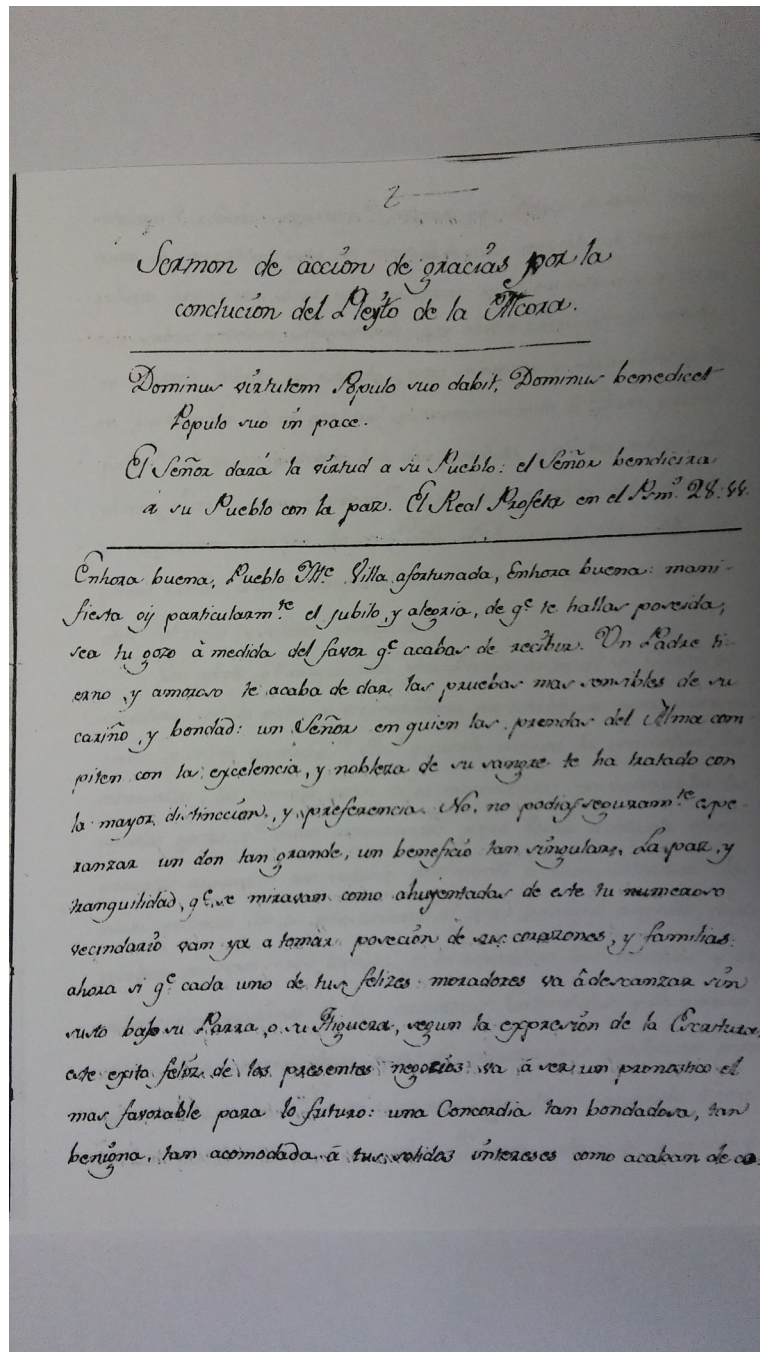 2
Sermon de acción de gracias por la
conclución del Pleyto de la Alcora.
Dominus virtutem Populo suo dabit, Dominus benedicet
Populo suo in pace.
El Señor dará la virtud a su Pueblo: el Señor bendicira
a su Pueblo con la paz. El Real Profeta en el Psm.º 28:
Enhora buena, Pueblo Villa afortunada, Enhora buena: mani-
fiesta oÿ particularm.te el jubilo, y alegria, de q.e te hallas poseida,
sea tu gozo à medida del favor q.e acabas de recibir. Un Padre ti-
erno, y amoroso te acaba de dar las pruebas mas sensibles de su
cariño, y bondad: un Señor en quien las prendas del Alma com
piten con la excelencia, y nobleza de su sangre te ha tratado con
la mayor distincción, y preferencia. No, no podias seguram.te espe-
ranzar un don tan grande, un beneficio tan singular. La paz, y
tranquilidad, q.e se miravam como ahuyentadas de este tu numeroso
vecindario vam ya a tomar poseción de sus corazones, y familias:
ahora si q.e cada uno de tus felizes moradores va â descanzar sin
susto bajo su Parra, o su Higuera, segun la expresión de la Escritura
este exito feliz de los presentes negocios va á ser un pronostico el
mas favorable para lo futuro: una Concordia tan bondadosa, tan
benigna, tan acomodada á tus solidos intereses como acaban de co